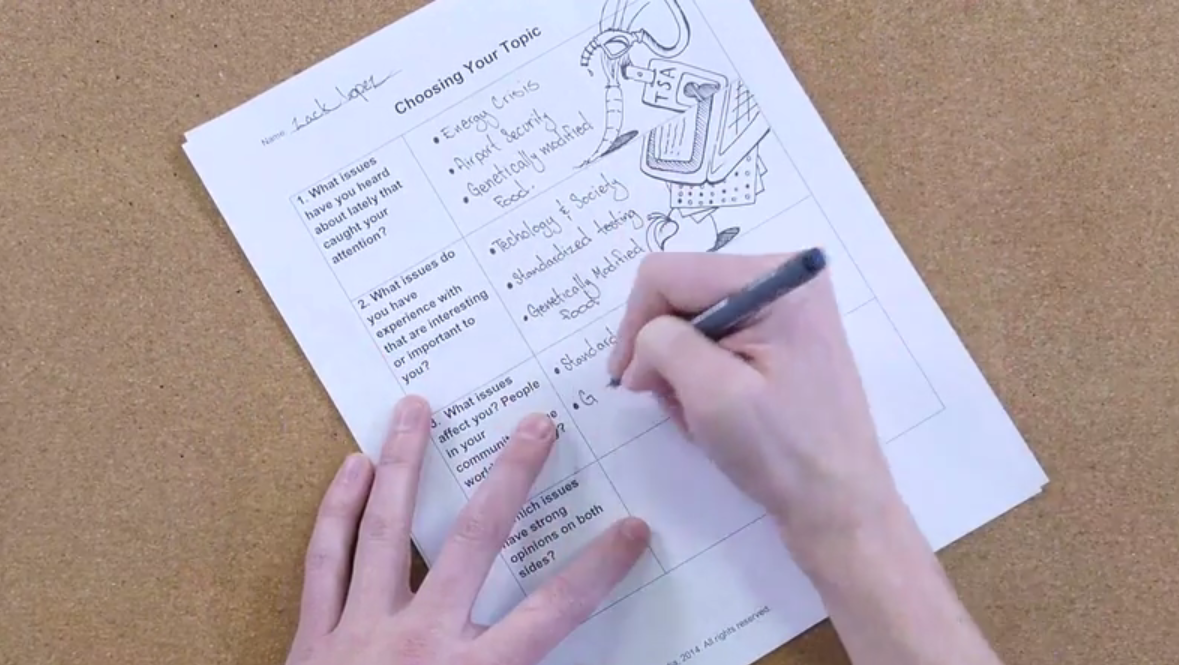 Choosing Your Topic
Name: Zack Lopez
1. What issues
have you heard
about lately that
caught your
attention?
• Energy Crisis
• Airport Security
• Genetically modified
Food.
TSA
2. What issues do
you have
experience with
that are interesting
or important to
you?
• Techology & Society
• Standardized testing
• Genetically Modified
food
3. What issues
affect you? People
in your
• Standard
• G
have strong
opinions on both
sides?
issues
2014. All rights reserved.